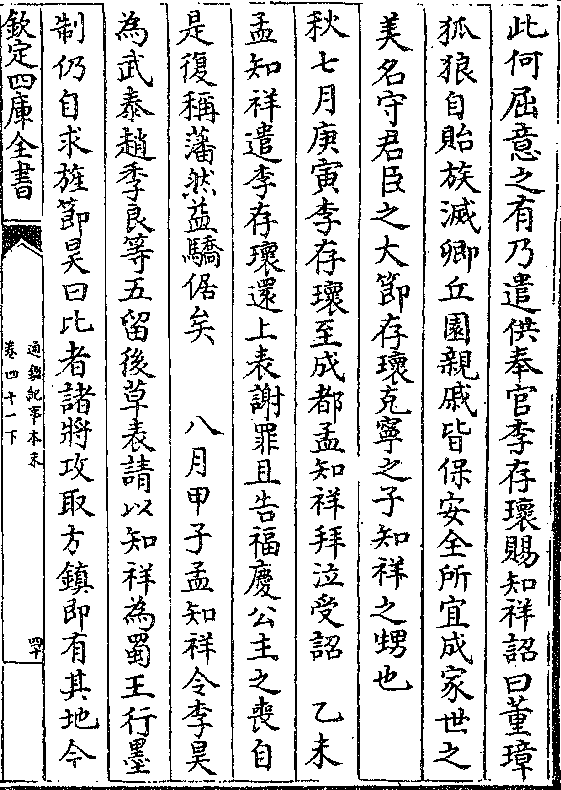 此何屈意之有乃遣供奉官李存瓌賜知祥詔曰董璋
狐狼自貽族滅卿丘園親戚皆保安全所宜成家世之
美名守君臣之大節存瓌克寧之子知祥之甥也
秋七月庚寅李存瓌至成都孟知祥拜泣受詔　乙未
孟知祥遣李存瓌還上表謝罪且告福慶公主之喪自
是復稱藩然益驕倨矣　八月甲子孟知祥令李昊
為武泰趙季良等五留後草表請以知祥為蜀王行墨
制仍自求旌節昊曰比者諸將攻取方鎮即有其地今
欽定四庫全書
通鑑紀事本末
卷四十一下
四十